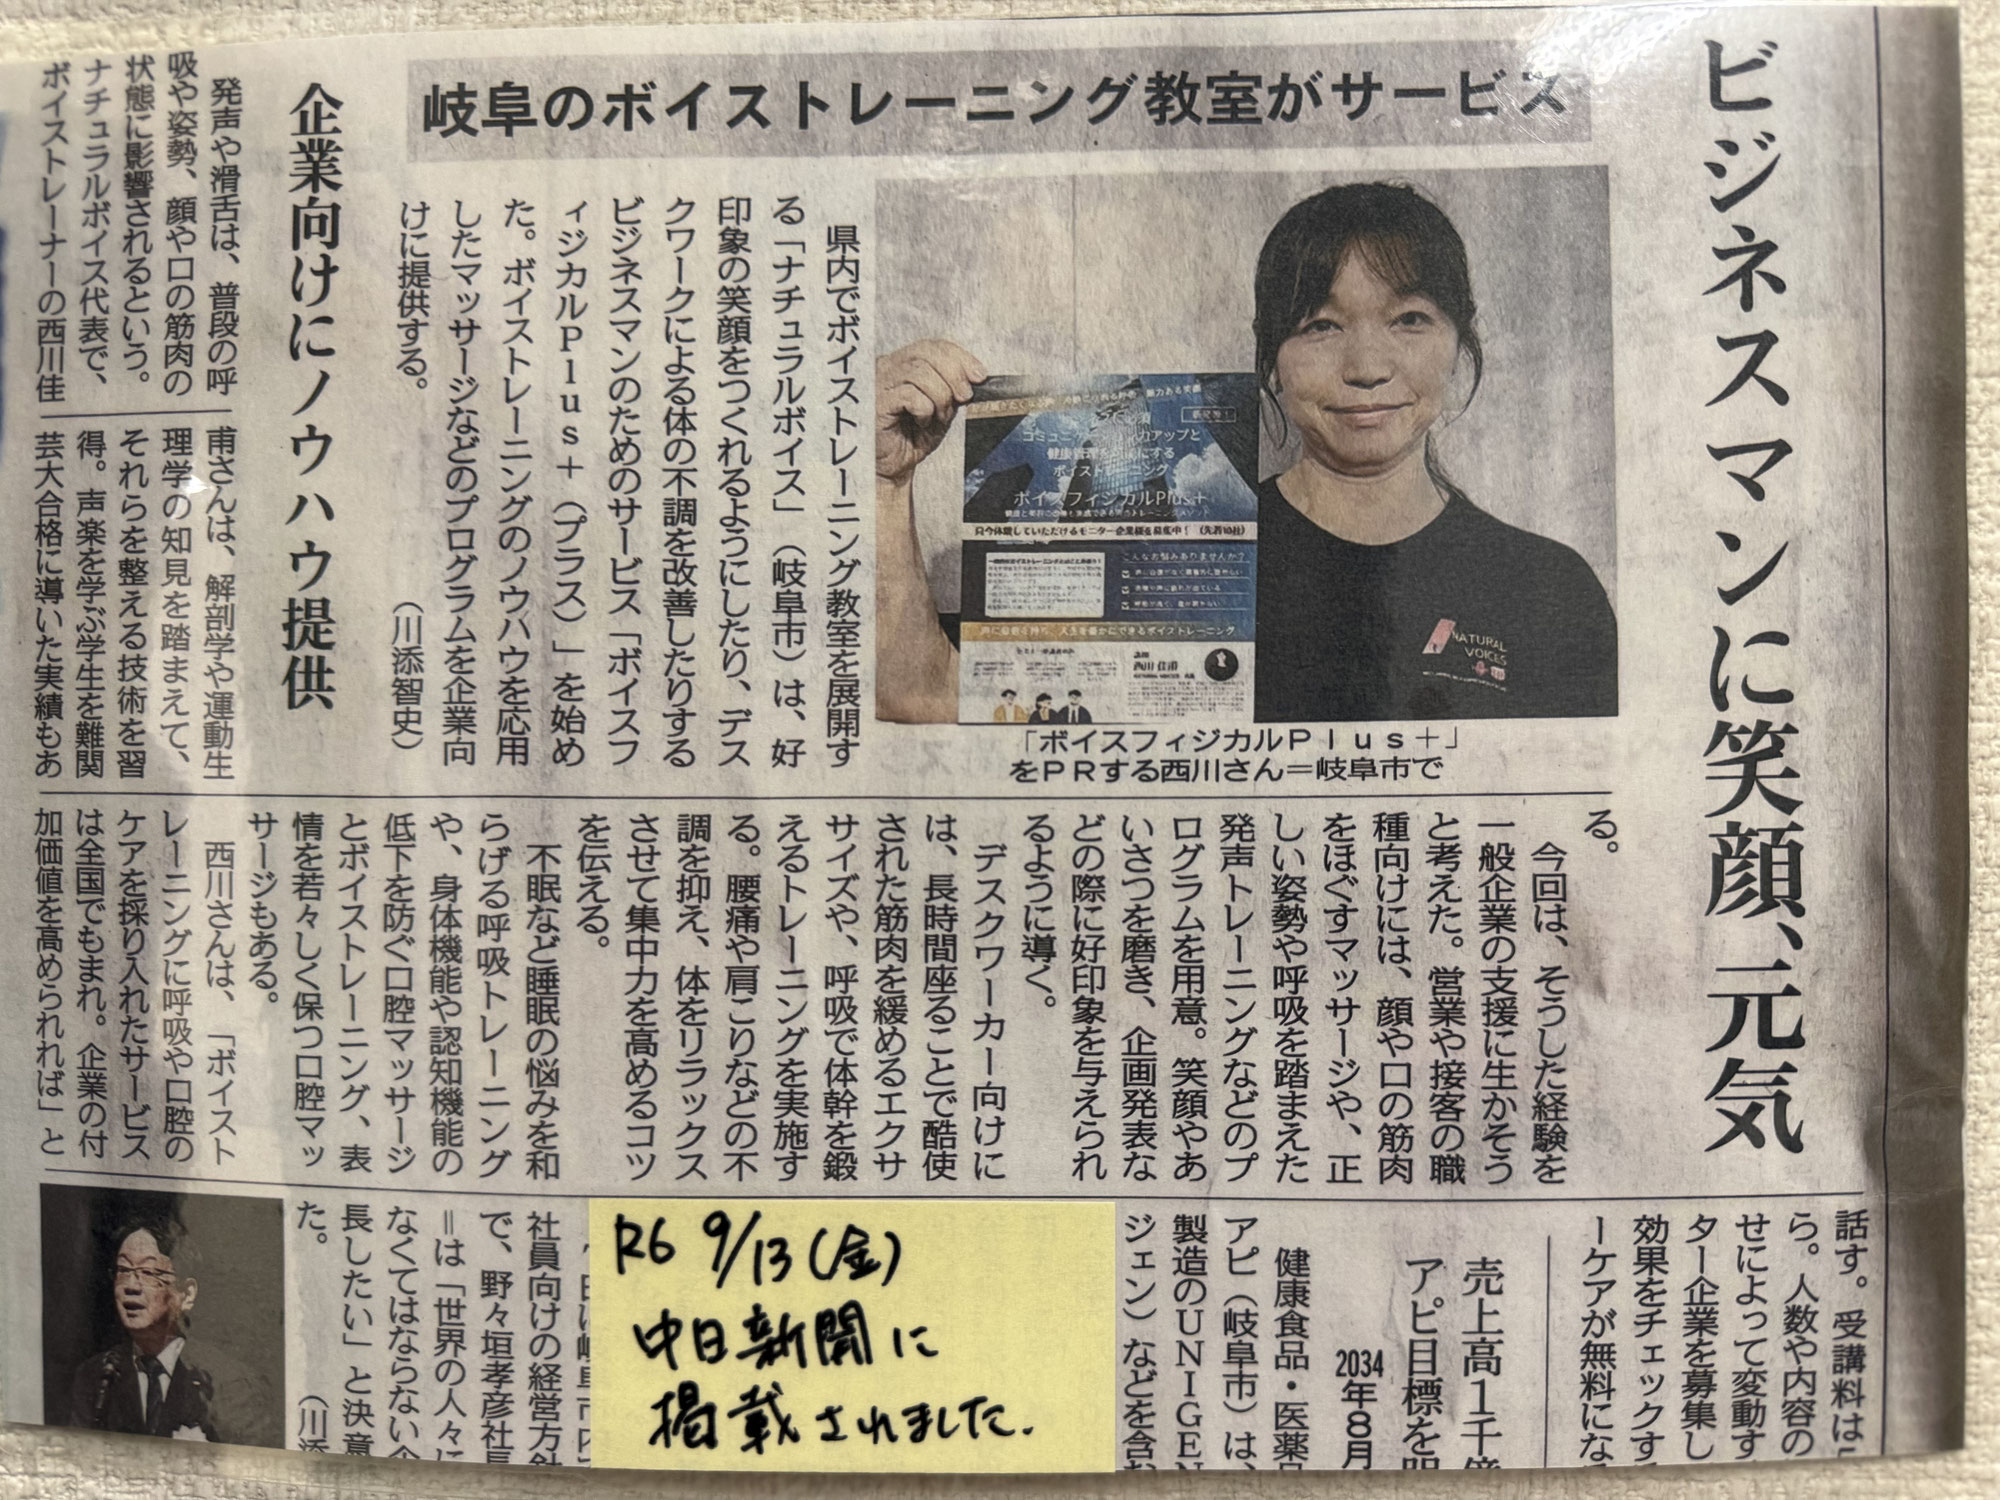 ビジネスマンに笑顔、元気
岐阜のボイストレーニング教室がサービス
「ボイスフィジカルPlus＋」
をPRする西川さん＝岐阜市で
コミュニケーション力アップと
ボイストレーニング
ボイスフィジカルPlus＋
只今体験していただけるモニター企業様を募集中！（先着10社）
こんなお悩みありませんか？
声に自信を持ち、人生を豊かにできるボイストレーニング
NATURAL
VOICES
県内でボイストレーニング教室を展開す
る「ナチュラルボイス」（岐阜市）は、好
印象の笑顔をつくれるようにしたり、デス
クワークによる体の不調を改善したりする
ビジネスマンのためのサービス「ボイスフ
ィジカルPlus＋（プラス）」を始め
た。ボイストレーニングのノウハウを応用
したマッサージなどのプログラムを企業向
けに提供する。
（川添智史）
企業向けにノウハウ提供
発声や滑舌は、普段の呼
吸や姿勢、顔や口の筋肉の
状態に影響されるという。
ナチュラルボイス代表で、
ボイストレーナーの西川佳
甫さんは、解剖学や運動生
理学の知見を踏まえて、
それらを整える技術を習
得。声楽を学ぶ学生を難関
芸大合格に導いた実績もあ
る。
今回は、そうした経験を
一般企業の支援に生かそう
と考えた。営業や接客の職
種向けには、顔や口の筋肉
をほぐすマッサージや、正
しい姿勢や呼吸を踏まえた
発声トレーニングなどのプ
ログラムを用意。笑顔やあ
いさつを磨き、企画発表な
どの際に好印象を与えられ
るように導く。
デスクワーカー向けに
は、長時間座ることで酷使
された筋肉を緩めるエクサ
サイズや、呼吸で体幹を鍛
えるトレーニングを実施す
る。腰痛や肩こりなどの不
調を抑え、体をリラックス
させて集中力を高めるコツ
を伝える。
不眠など睡眠の悩みを和
らげる呼吸トレーニング
や、身体機能や認知機能の
低下を防ぐ口腔マッサージ
とボイストレーニング、表
情を若々しく保つ口腔マッ
サージもある。
西川さんは、「ボイスト
レーニングに呼吸や口腔の
ケアを採り入れたサービス
は全国でもまれ。企業の付
加価値を高められれば」と
話す。受講料は
ら。人数や内容の
せによって変動す
ター企業を募集し
効果をチェックす
ーケアが無料にな
売上高1千億
アピ目標を
2034年8月
健康食品・医薬品
アピ（岐阜市）は、
製造のUNIGEN
ジェン）などを含む
社員向けの経営方針
で、野々垣孝彦社長
＝は「世界の人々に
なくてはならない企
長したい」と決意
た。
（川添
R6 9/13（金）
中日新聞に
掲載されました.